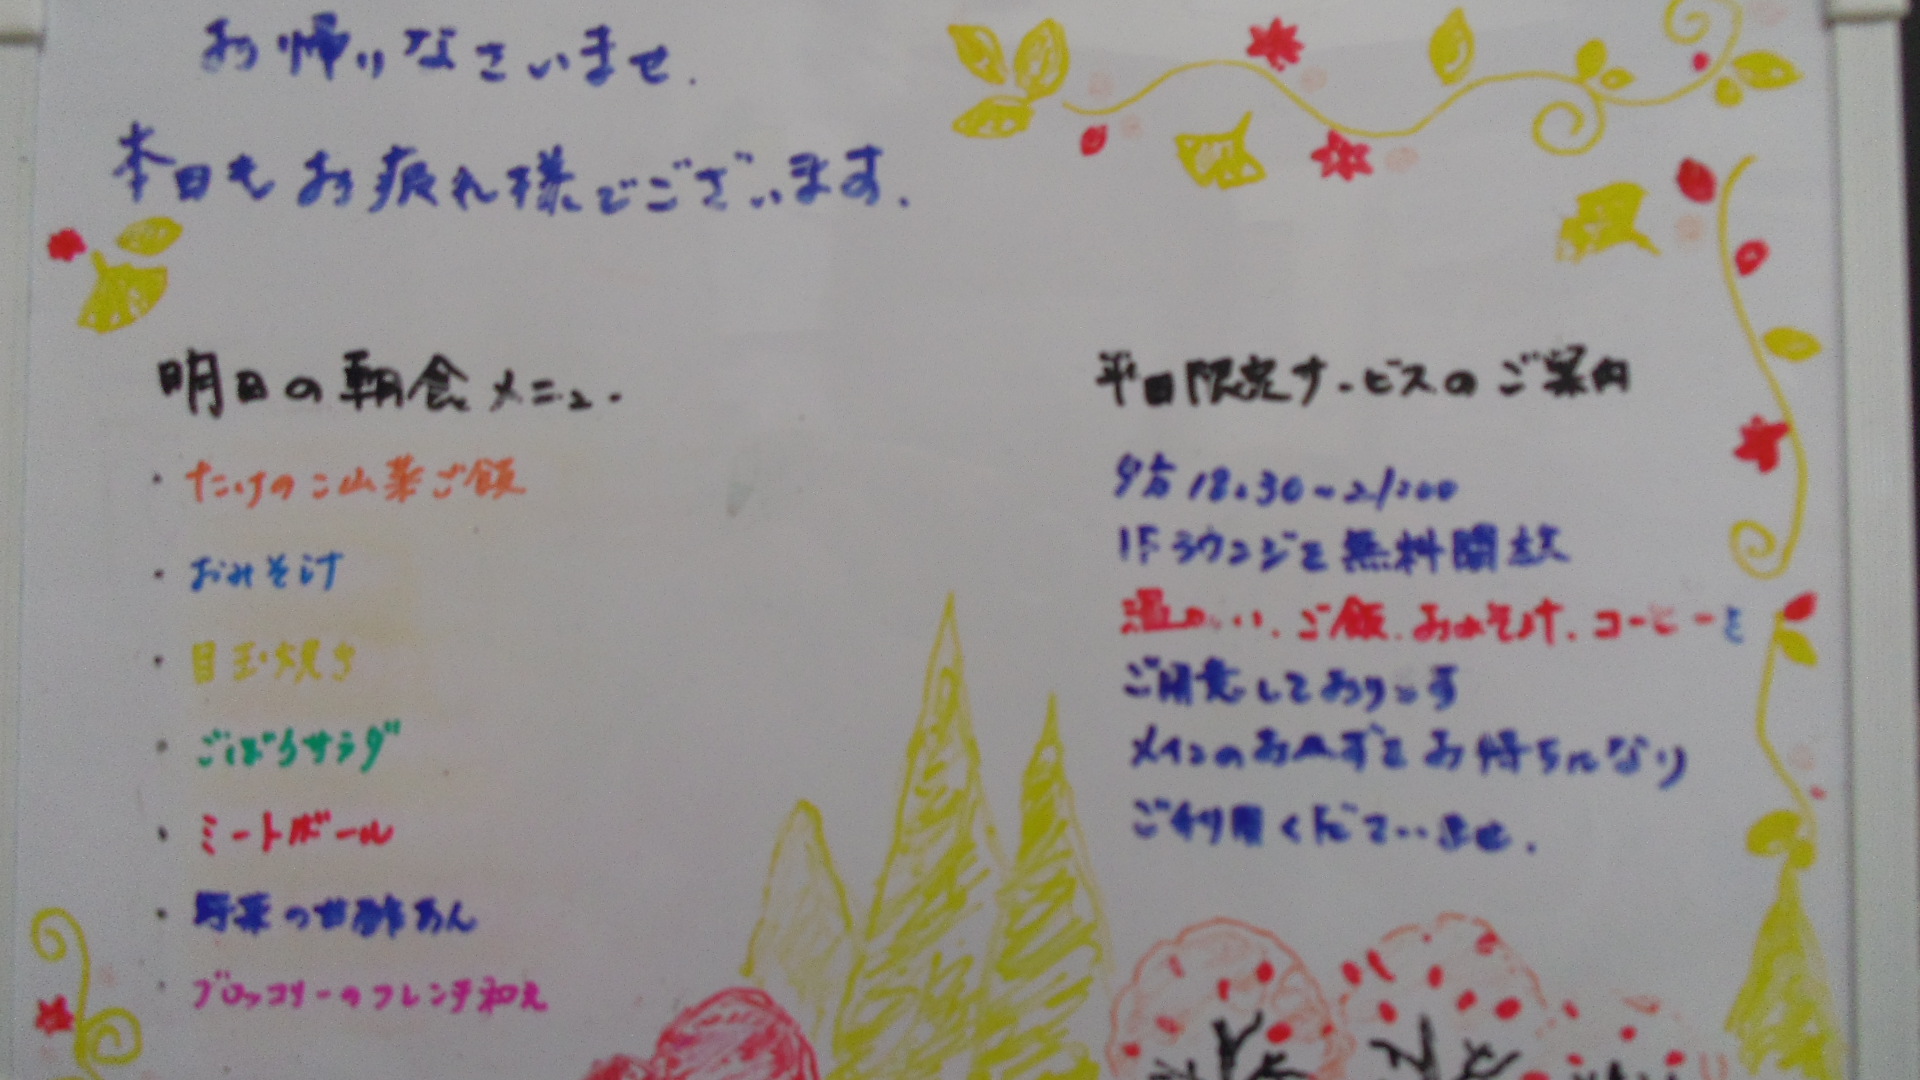 お帰りなさいませ.
本日もお疲れ様でございます.
明日の朝食メニュー
・たけのこ山菜ご飯
・おみそ汁
・目玉焼き
・ごぼうサラダ
・ミートボール
・野菜の甘酢あん
・ブロッコリーのフレンチ和え
平日限定サービスのご案内
夕方 18:30～21:00
1Fラウンジを無料開放
温かい、ご飯、おみそ汁、コーヒーを
ご用意しております
メインのおかずをお持ちになり
ご利用くださいませ.